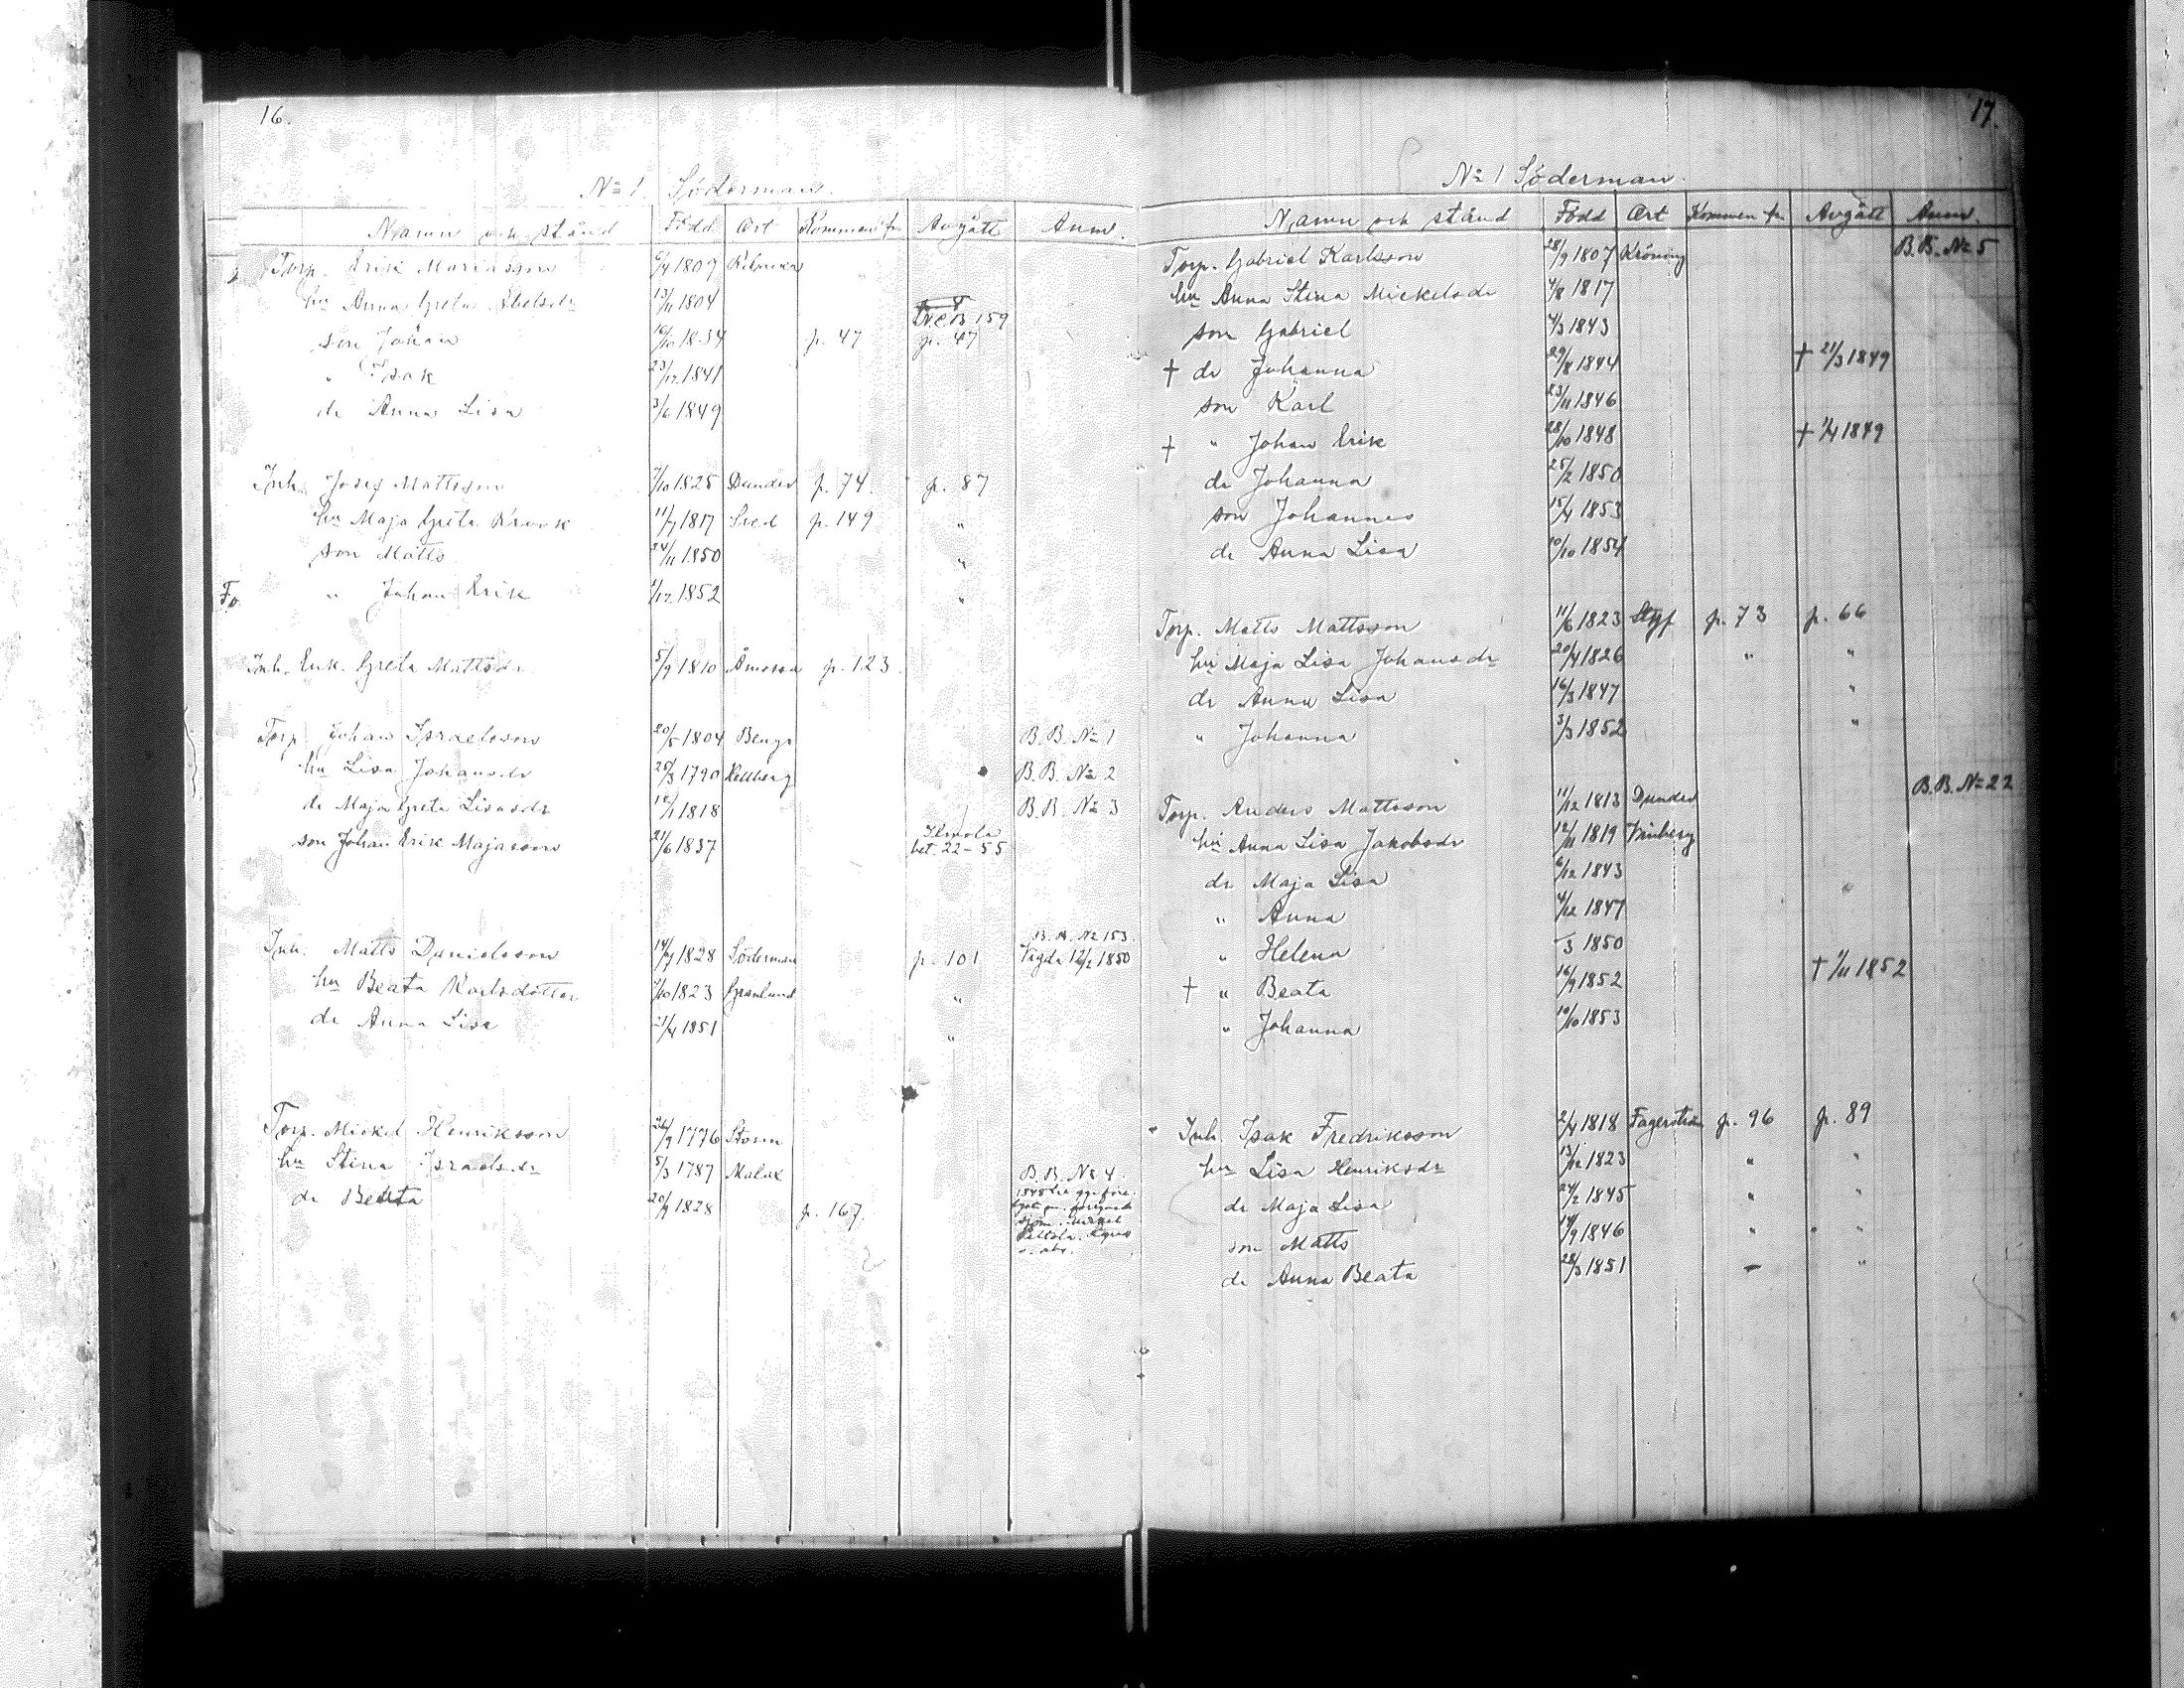 16.
No 1. Söderman.
Namn och stånd Född Ort Kommen fr Avgått Anm.
Torp. Erik Mariasson 6/4 1809
hu Anna Greta Abelsdr 13/11 1804
B 159
son Johan 16/10 1834 p. 47 p. 47
" Isak 23/12 1841
dr Anna Lisa 3/6 1849
Inh. Josef Mattsson 7/10 1825 Dunder p. 74. p. 87
hu Maja Greta Kronk 11/7 1817 Sved p. 149 "
son Matts 24/11 1850 "
Fo. " Johan Erik 1/12 1852 "
Inh. Enk. Greta Mattsdr. 5/9 1810 Åmossa p. 123.
Torp. Johan Israelsson 20/5 1804 Bengs B.B. No 1
hu Lisa Johansdr 25/3 1790 Kellberg B.B. No 2
dr Maja Greta Lisasdr 12/1 1818 B.B. No 3
son Johan Erik Majasson 21/6 1837 Ilmola
bet. 22-55
B.B. No 153.
Inh. Matts Danielsson 14/7 1828 Söderman p. 101 Vigda 12/2 1850
hu Beata Karlsdotter 7/10 1823 Granlund "
dr Anna Lisa 21/4 1851 "
Torp. Mickel Henriksson 26/9 1776 Storm
hu Stina Israelsdr 5/3 1787 Malax B.B. No 4.
dr Beata 20/9 1828 p. 167. 1848
Mickel
17.
No 1 Söderman.
Namn och stånd Född Ort Kommen fr Avgått Anm.
Torp. Gabriel Karlsson 28/9 1807 Kröning B.B. No 5
hu Anna Stina Mickelsdr 4/8 1817
son Gabriel 4/3 1843
† dr Johanna 29/8 1844 † 21/3 1849
son Karl 23/11 1846
† " Johan Erik 28/10 1848 † 1/4 1849
dr Johanna 25/2 1850
son Johannes 15/4 1853
dr Anna Lisa 10/10 1854
Torp. Matts Mattsson 11/6 1823 Styf p. 73 p. 66
hu Maja Lisa Johansdr 20/4 1826 " "
dr Anna Lisa 16/3 1847 "
" Johanna 3/3 1852 "
Torp. Anders Mattsson 11/12 1813 Dunder B.B. No 22
hu Anna Lisa Jakobsdr 12/11 1819 Vinberg
dr Maja Lisa 6/12 1843
" Anna 4/12 1847
" Helena -/3 1850
† " Beata 16/9 1852 † 1/11 1852
" Johanna 10/10 1853
Inh. Isak Fredriksson 2/4 1818 Fagerström p. 96 p. 89
hu Lisa Henriksdr 13/12 1823 " "
dr Maja Lisa 24/2 1845 " "
son Matts 14/9 1846 " "
dr Anna Beata 28/3 1851 - "